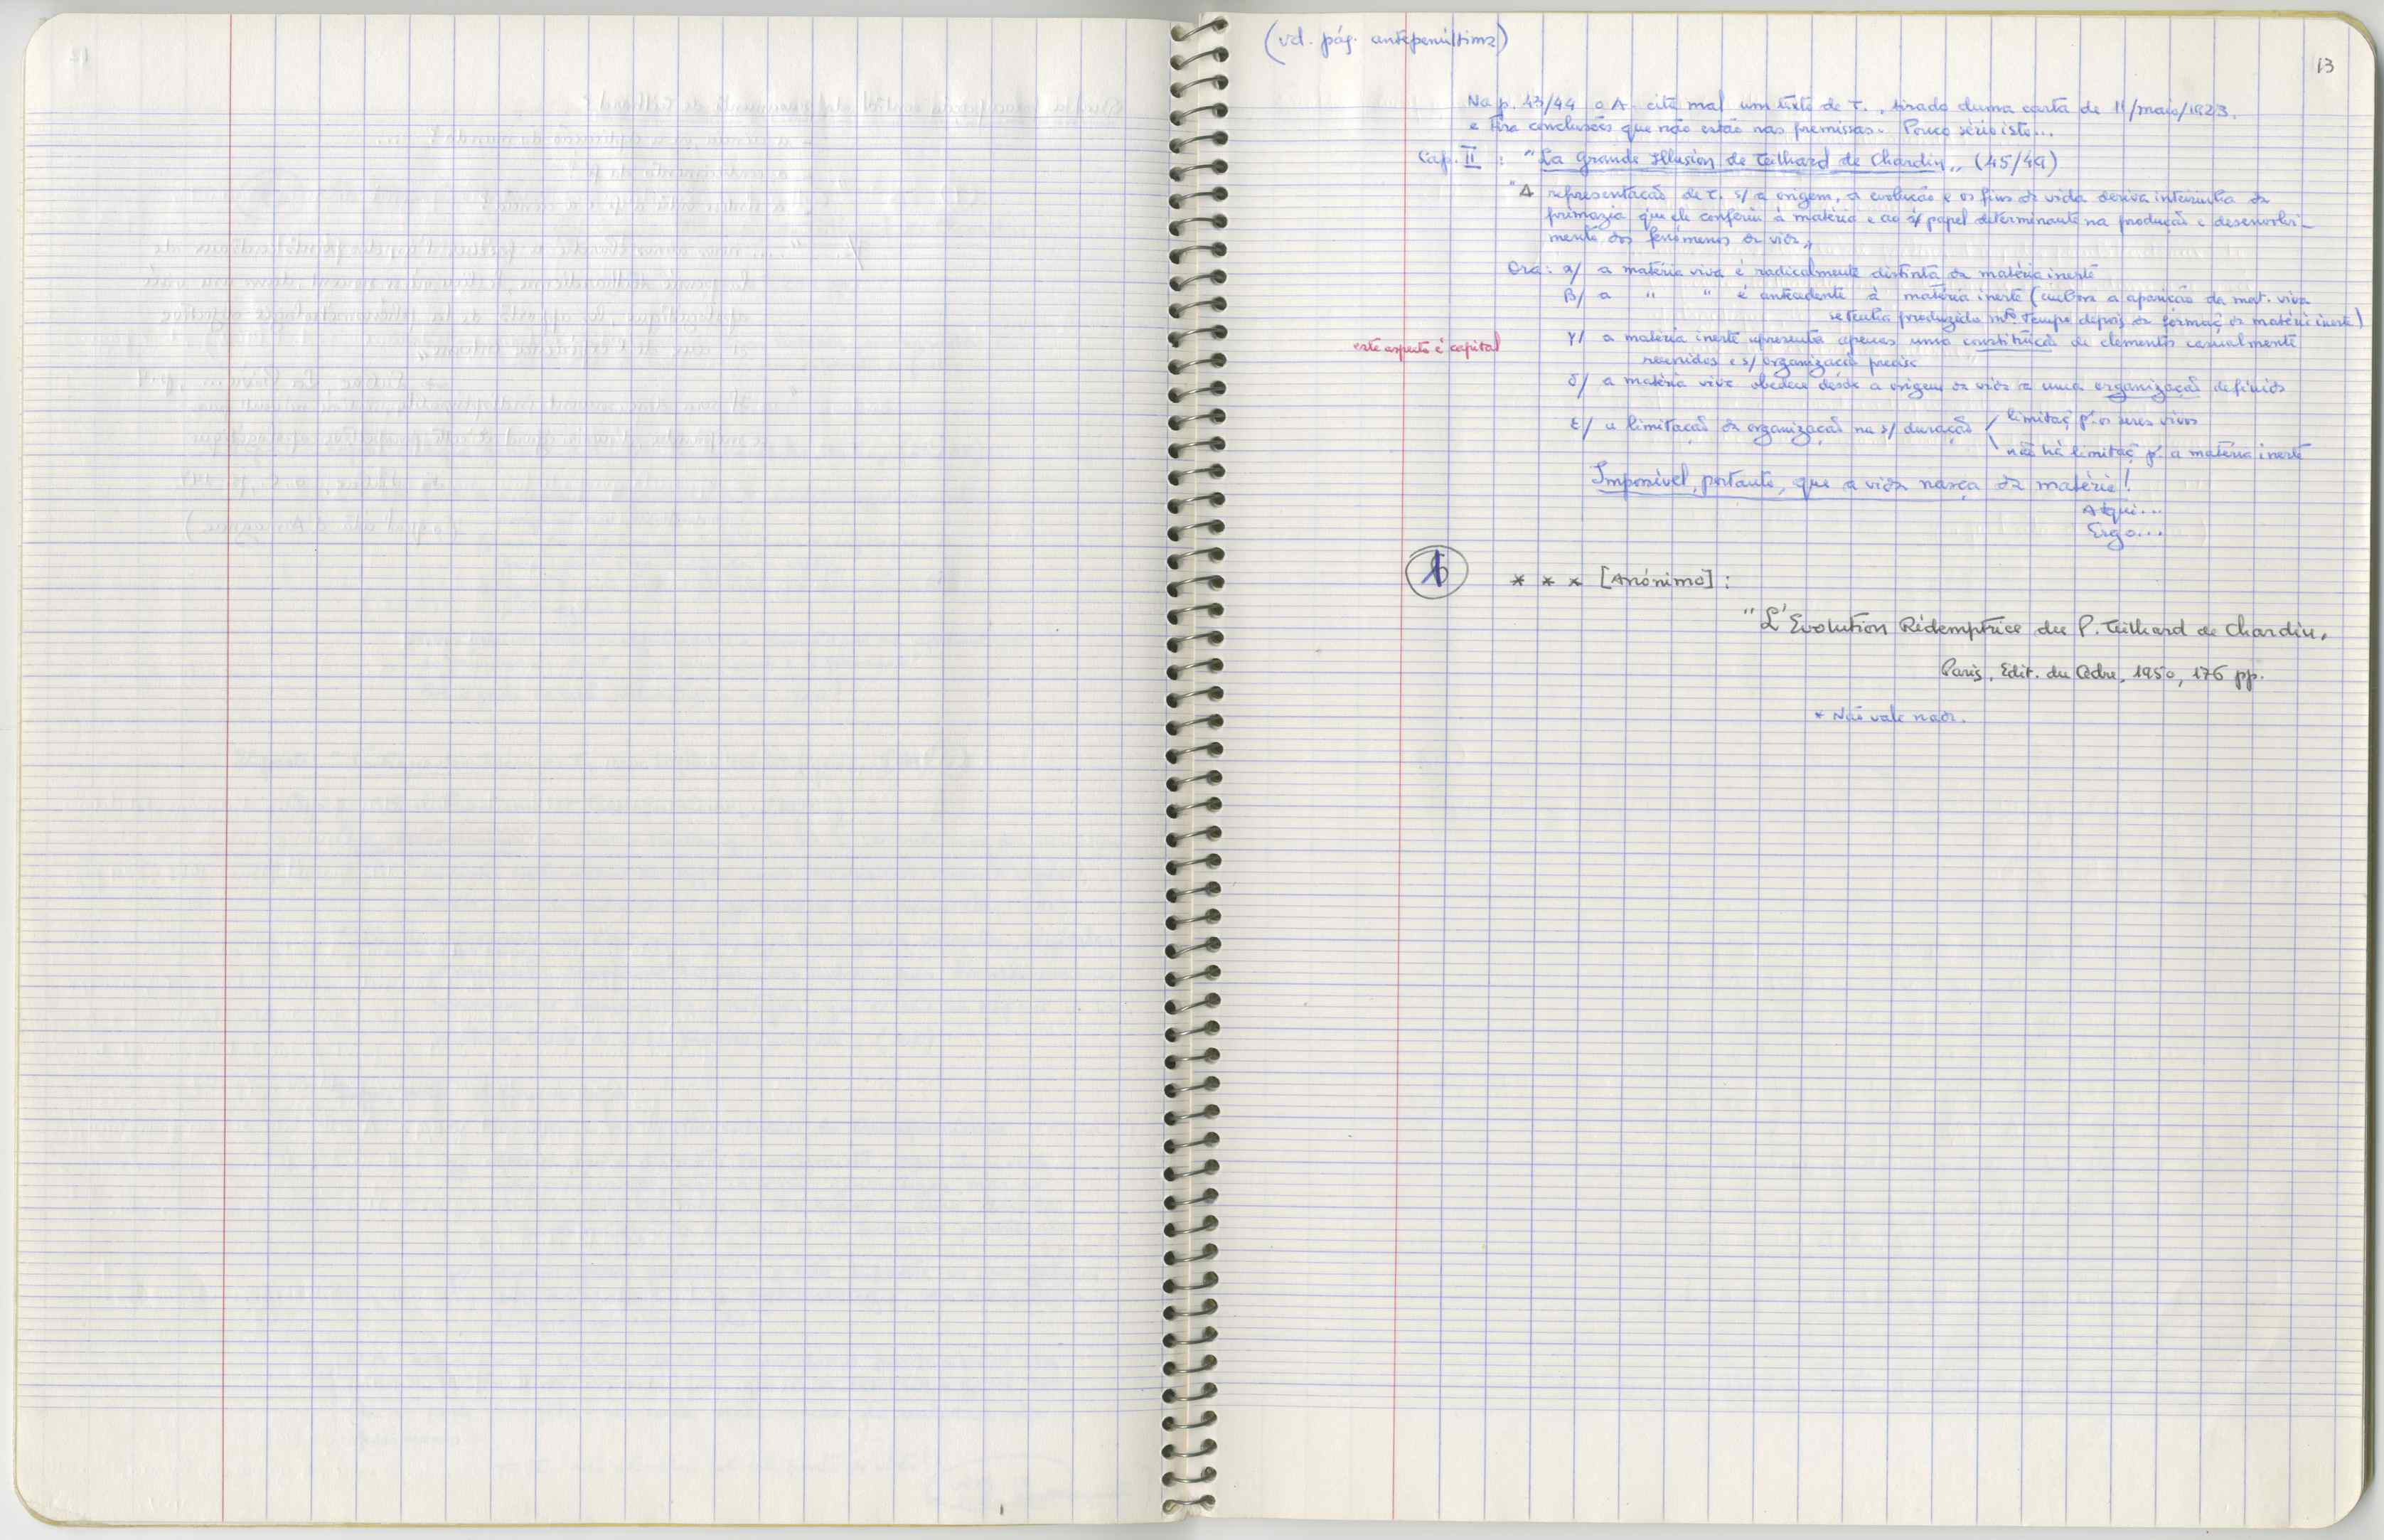 (vd. pág. antepenúltima)
13
Na p. 43/44 o A. cita mal um texto de T., tirado duma carta de 11/maio/1923,
e tira conclusões que não estão nas premissas. Pouco sério isto...
Cap. II : "La Grande Illusion de Teilhard de Chardin,, (45/49)
"A representação de T. s/ a origem, a evolução e os fins da vida deriva inteirinha da
primazia que ele conferiu à matéria e ao s/ papel determinante na produção e desenvolvi-
mento dos fenómenos da vida,,
Ora: α/ a matéria viva é radicalmente distinta da matéria inerte
β/ a " " é antecedente à matéria inerte (embora a aparição da mat. viva
se tenha produzido mto tempo depois da formaç da matéria inerte)
este aspecto é capital
γ/ a matéria inerte apresenta apenas uma constituição de elementos casualmente
reunidos e s/ organização precisa
δ/ a matéria viva obedece desde a origem da vida a uma organização definida
ε/ a limitação da organização na s/ duração / limitaç p.ª os seres vivos
\ não há limitaç p.ª a matéria inerte
Impossível, portanto, que a vida nasça da matéria!
Atqui...
Ergo...
* * * [Anónimo] :
"L'Evolution Rédemptrice du P. Teilhard de Chardin,
Paris, Edit. du Cèdre, 1950, 176 pp.
* Não vale nada.